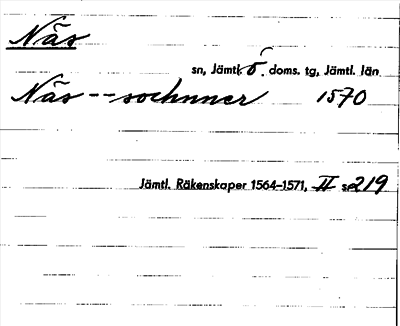 Näs
sn, Jämtl. ö. doms. tg, Jämtl. län
Näs -- sochnner 1570
Jämtl. Räkenskaper 1564–1571, II s. 219